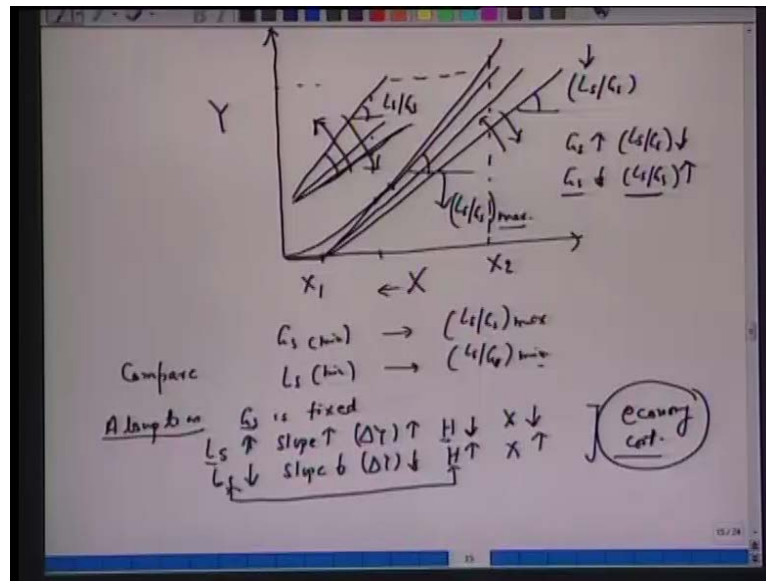 Y
Ls/Gs
(Ls/Gs)
Gs ↑ (Ls/Gs) ↓
Gs ↓ (Ls/Gs) ↑
(Ls/Gs) max.
X1 ← X X2
Gs (min) → (Ls/Gs) max
Compare Ls (min) → (Ls/Gs) min
Gs is fixed
Ls ↑ slope ↑ (ΔY) ↑ H ↓ X ↓
Ls ↓ slope ↓ (ΔY) ↓ H ↑ X ↑
economy
cost.
15/24
15